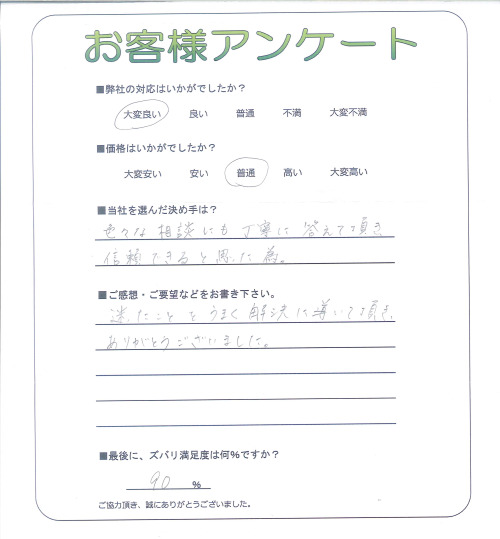 お客様アンケート
■弊社の対応はいかがでしたか？
大変良い 良い 普通 不満 大変不満
■価格はいかがでしたか？
大変安い 安い 普通 高い 大変高い
■当社を選んだ決め手は？
色々な相談にも丁寧に答えて頂き
信頼できると思った為。
■ご感想・ご要望などをお書き下さい。
迷ったことをうまく解決に導いて頂き、
ありがとうございました。
■最後に、ズバリ満足度は何%ですか？
90 %
ご協力頂き、誠にありがとうございました。